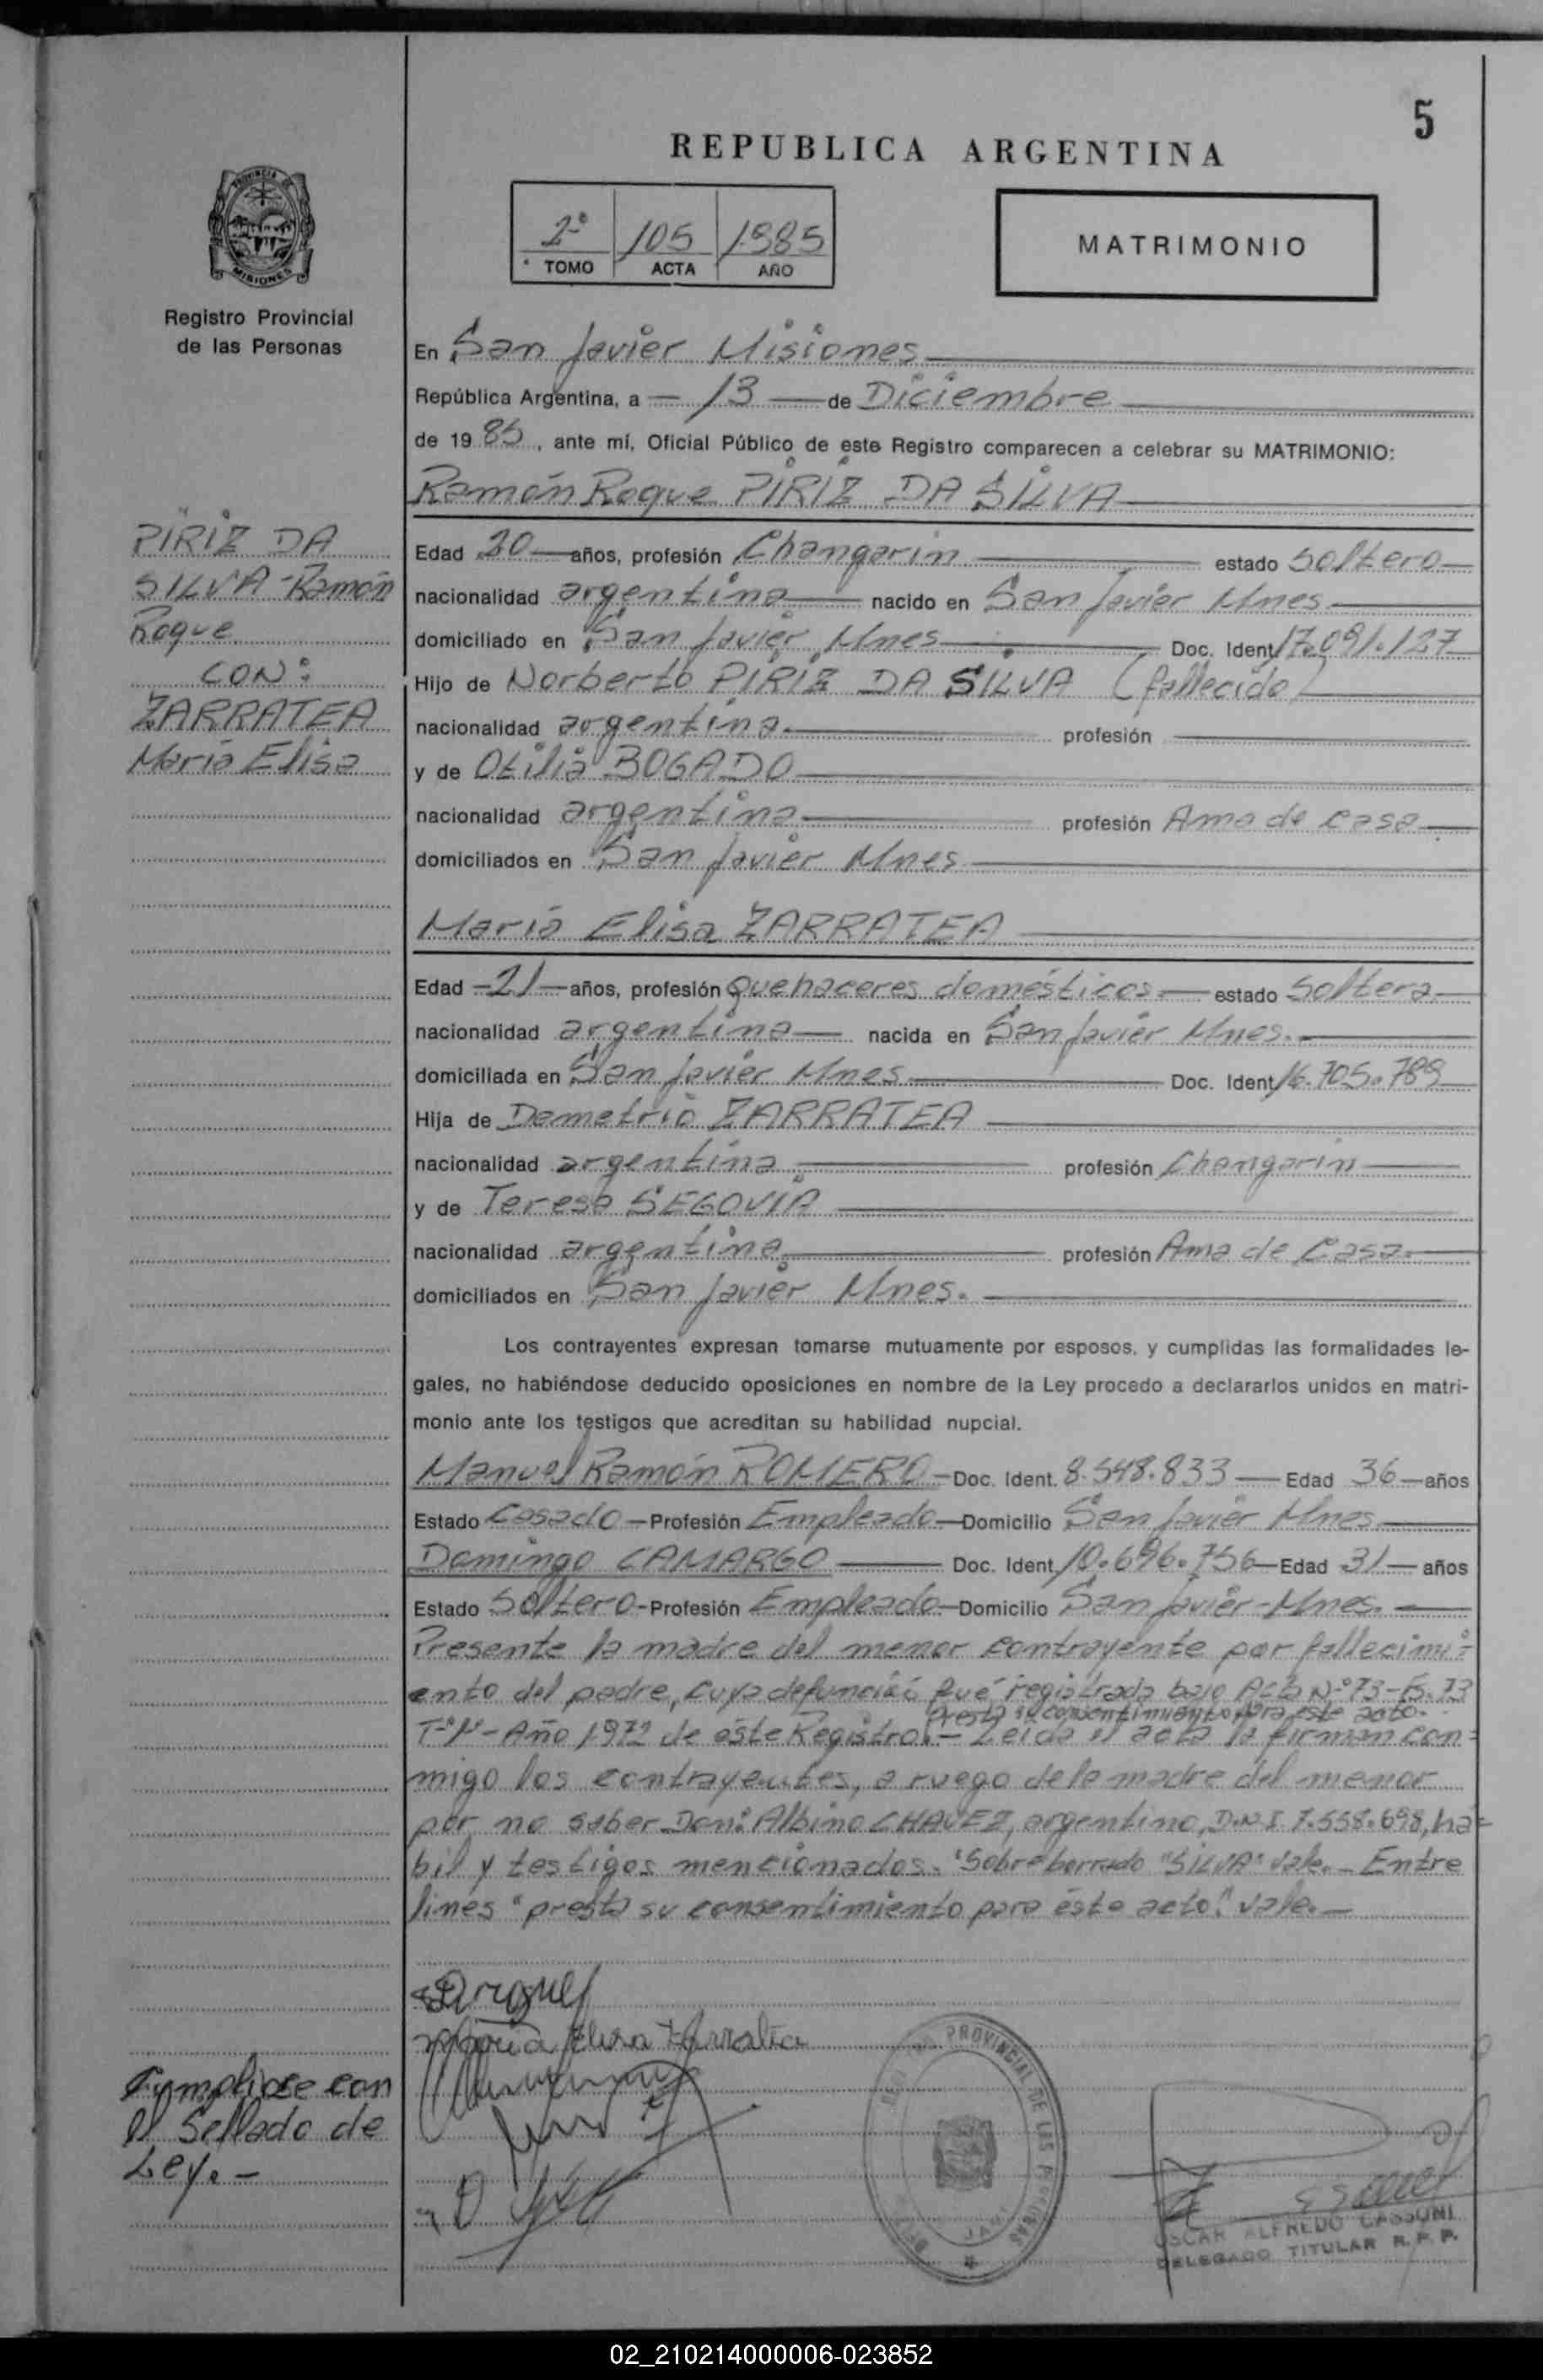 5
REPUBLICA ARGENTINA
2º 105 1.985
TOMO ACTA AÑO
MATRIMONIO
PROVINCIA DE
MISIONES
Registro Provincial
de las Personas
En San Javier Misiones
República Argentina, a 13 de Diciembre
de 19 85, ante mí, Oficial Público de este Registro comparecen a celebrar su MATRIMONIO:
Ramón Roque PIRIZ DA SILVA
PIRIZ DA
SILVA - Ramón
Roque
CON:
ZARRATEA
María Elisa
Edad 20 años, profesión Changarin estado soltero
nacionalidad argentina nacido en San Javier Mnes
domiciliado en San Javier Mnes Doc. Ident. 17.091.127
Hijo de Norberto PIRIZ DA SILVA (fallecido)
nacionalidad argentina. profesión
y de Otilia BOGADO
nacionalidad argentina profesión Ama de casa
domiciliados en San Javier Mnes
María Elisa ZARRATEA
Edad -21- años, profesión quehaceres domésticos. estado soltera
nacionalidad argentina nacida en San Javier Mnes.
domiciliada en San Javier Mnes Doc. Ident. 16.705.789
Hija de Demetrio ZARRATEA
nacionalidad argentina profesión Changarin
y de Teresa SEGOVIA
nacionalidad argentina profesión Ama de Casa.
domiciliados en San Javier Mnes.
Los contrayentes expresan tomarse mutuamente por esposos, y cumplidas las formalidades le-
gales, no habiéndose deducido oposiciones en nombre de la Ley procedo a declararlos unidos en matri-
monio ante los testigos que acreditan su habilidad nupcial.
Manuel Ramón ROMERO - Doc. Ident. 8.548.833 Edad 36 años
Estado Casado - Profesión Empleado - Domicilio San Javier Mnes
Domingo CAMARGO Doc. Ident. 10.696.756 Edad 31 años
Estado Soltero - Profesión Empleado - Domicilio San Javier - Mnes.
Presente la madre del menor contrayente por fallecimi-
ento del padre, cuya defunción fué registrada bajo Acta Nº 73 - Fs. 73
presta su consentimiento para este acto.
Año 1972 de éste Registro. - Leida el acta la firman con-
migo los contrayentes, a ruego de la madre del menor
por no saber Don: Albino CHAVEZ, argentino, D.N.I. 7.558.698, há-
bil y testigos mencionados. "Sobre borrado "SILVA" vale. - Entre
lines "presta su consentimiento para éste acto". vale. -
María Elisa Zarratea
Cumpliose con
el Sellado de
Ley. -
PROVINCIAL DE LAS PERSONAS
OSCAR ALFREDO CASSONI
DELEGADO TITULAR R. P. P.
02_210214000006-023852